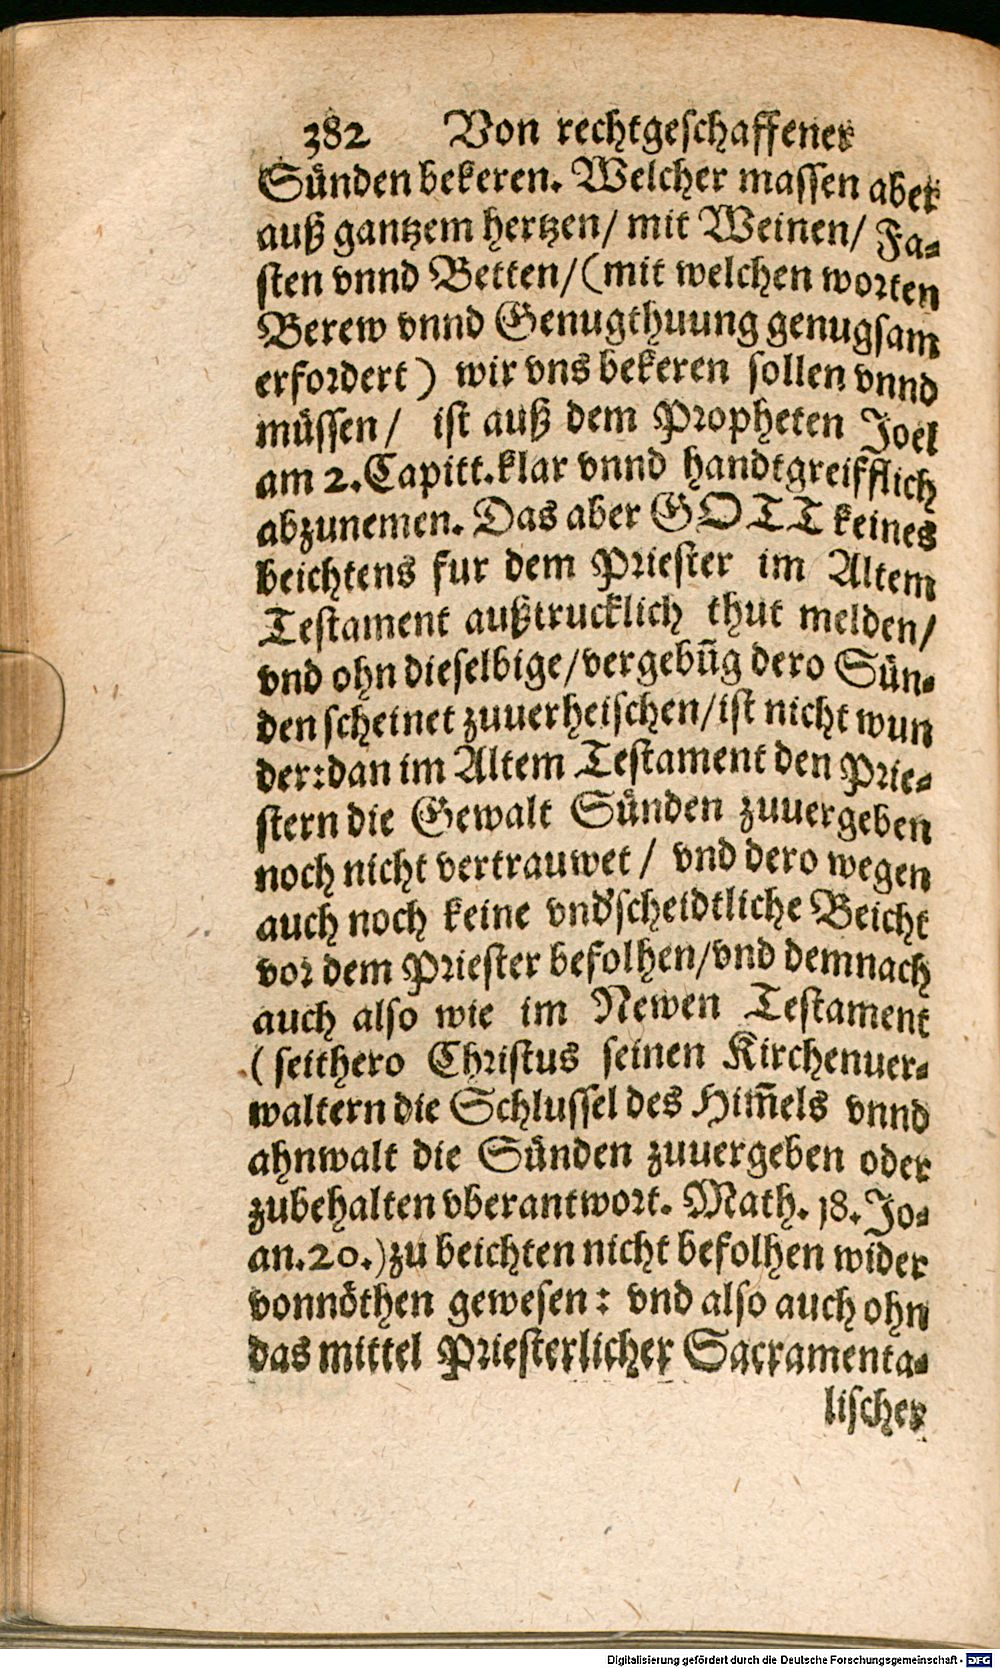 382 Von rechtgeschaffener
Sünden bekeren. Welcher massen aber
auß gantzem hertzen/ mit Weinen/ Fa-
sten vnnd Betten/ (mit welchen worten
Berew vnnd Genugthuung genugsam
erfordert) wir vns bekeren sollen vnnd
müssen/ ist auß dem Propheten Joel
am 2. Capitt. klar vnnd handtgreifflich
abzunemen. Das aber GOTT keines
beichtens fur dem Priester im Altem
Testament außtrucklich thut melden/
vnd ohn dieselbige/ vergebūg dero Sün-
den scheinet zuuerheischen/ ist nicht wun
der: dan im Altem Testament den Prie-
stern die Gewalt Sünden zuuergeben
noch nicht vertrauwet/ vnd dero wegen
auch noch keine vnd'scheidtliche Beicht
vor dem Priester befolhen/ vnd demnach
auch also wie im Newen Testament
(seithero Christus seinen Kirchenuer-
waltern die Schlussel des Him̄els vnnd
ahnwalt die Sünden zuuergeben oder
zubehalten vberantwort. Math. 18. Jo-
an. 20.) zu beichten nicht befolhen wider
vonnöthen gewesen: vnd also auch ohn
das mittel Priesterlicher Sacramenta-
lischer
Digitalisierung gefördert durch die Deutsche Forschungsgemeinschaft - DFG